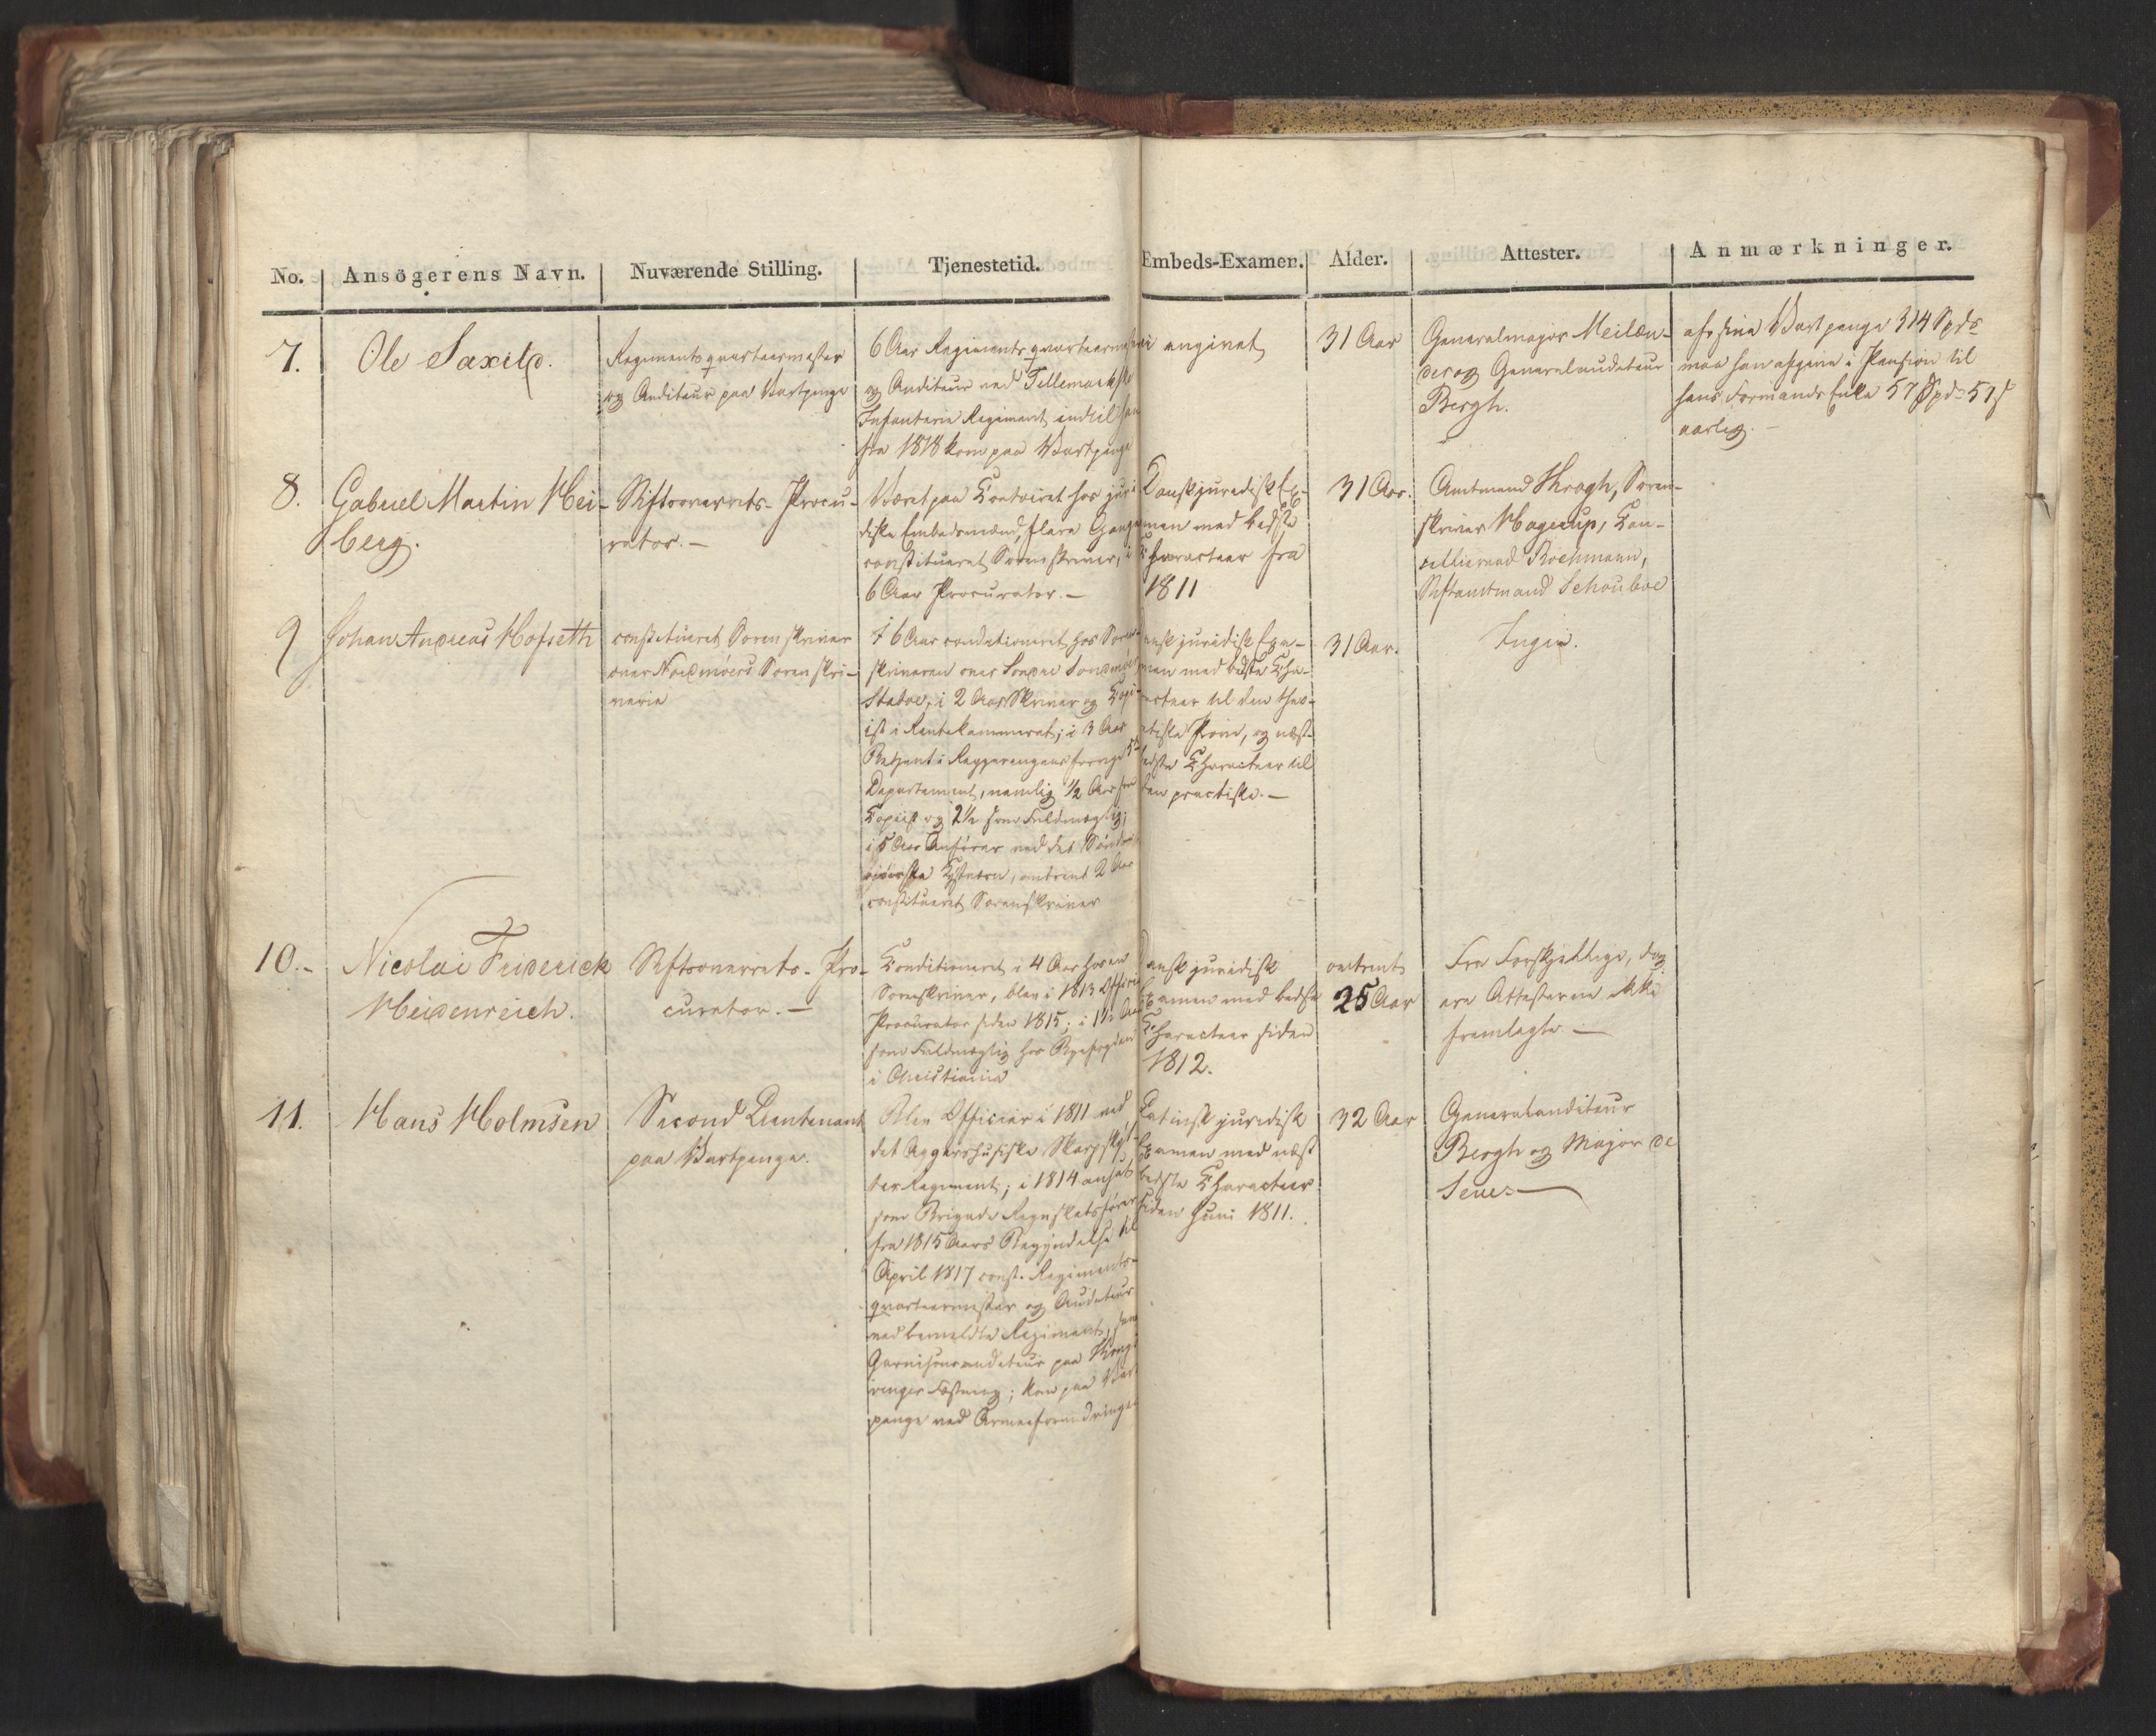 No. Ansögerens Navn. Nuværende Stilling. Tjenestetid. Embeds-Examen. Alder. Attester. Anmærkninger.
7. Ole Saxild.
Regimentsqvarteermester
og Auditeur paa Vartpenge
6 Aar Regimentsqvarteermester
og Auditeur ved Tellemarkske
Infanterie Regiment indtil han
fra 1818 kom paa Vartpenge
ei angivet
31 Aar
Generalmajor Meilæn-
der og Generalauditeur
Bergh.
af sine Vartpenge 314 Spd
maa han afgive i Pension til
hans Formands Enke 57 Spd 57 s
aarlig. -
8. Gabriel Martin Hei-
berg.
Stiftsoverrets-Procu-
rator. -
Været paa Contoiret hos juri
diske Embedsmænd, flere Gange
constitueret Sorenskriver, i
6 Aar Procurator. -
Dansk juridisk Ex-
amen med bedste
Characteer fra
1811
31 Aar.
Amtmand Krogh, Soren-
skriver Hagerup, Can-
cellieraad Rochmann,
Stiftamtmand Schouboe
9 Johan Andreas Hofseth
constitueret Sorenskriver
over Nordmöers Sorenskri-
verie
I 6 Aar conditioneret hos Soren-
skriveren over Söndre Söndmöer
i 2 Aar Skriver og Copi-
ist i Rentekammeret; i 3 Aar
Betjent i Regjeringens forrige 5te
Departement, nemlig 1/2 Aar som
Copiist og 2 1/2 som Fuldmægtig;
i 5 Aar Anförer ved det Sönd-
möerske Kystværn, omtrent 2 Aar
constitueret Sorenskriver
Dansk juridisk Exa-
men med bedste Cha-
racteer til den theo-
retiske Pröve, og næst-
bedste Characteer til
den practiske. -
31 Aar.
Ingen.
10. - Nicolai Friderick
Heidenreich.
Stiftsoverrets-Pro-
curator. -
Conditioneret i 4 Aar hos en
Sorenskriver, blev i 1813
Procurator siden 1815; i 1 1/2 Aar
som Fuldmægtig hos Byefogden
i Christiania
Dansk juridisk
Examen med bedste
Characteer siden
1812.
omtrent
25 Aar
Fra Forskjellige, dog
ere Attesterne ikke
fremlagte. -
11. Hans Holmsen
Second Lieutenant
paa Vartpenge.
Blev Officier i 1811 ved
det Aggershusiske Skarpskyt-
ter Regiment; i 1814 ansat
som Brigade Regnskabsförer
fra 1815 Aars Begyndelse til
April 1817 const. Regiments-
qvarteermester og Auditeur
ved bemeldte Regiment, samt
Garnisonsauditeur paa Kongs-
vinger Fæstning; kom paa Vart-
penge ved Armeeforandringen
Latinsk juridisk
Examen med næst
bedste Characteer
siden Juni 1811.
32 Aar
Generalauditeur
Bergh og Major de
Seues